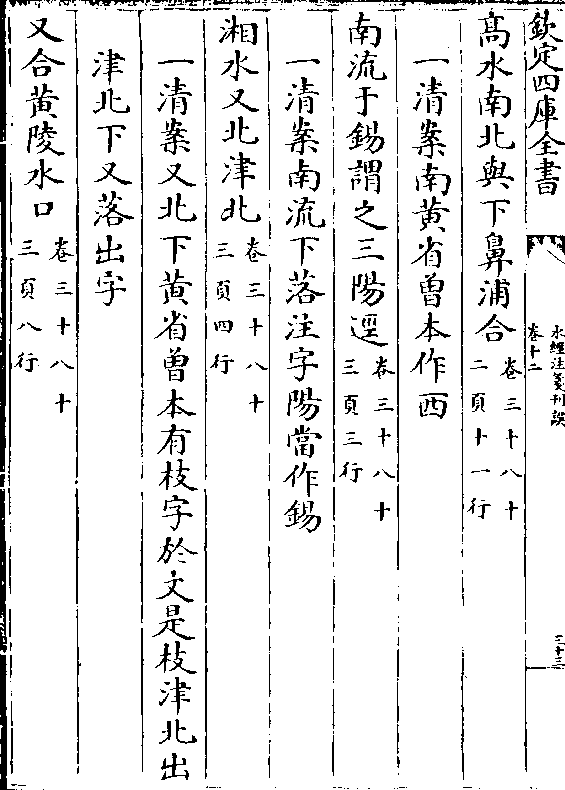 欽定四庫全書
水經注箋刊誤
卷十二
三十三
高水南北與下鼻浦合卷三十八十
二頁十一行
一清案南黄省曾本作西
南流于錫謂之三陽逕卷三十八十
三頁三行
一清案南流下落注字陽當作錫
湘水又北津北卷三十八十
三頁四行
一清案又北下黄省曾本有枝字於文是枝津北出
津北下又落出字
又合黄陵水口卷三十八十
三頁八行